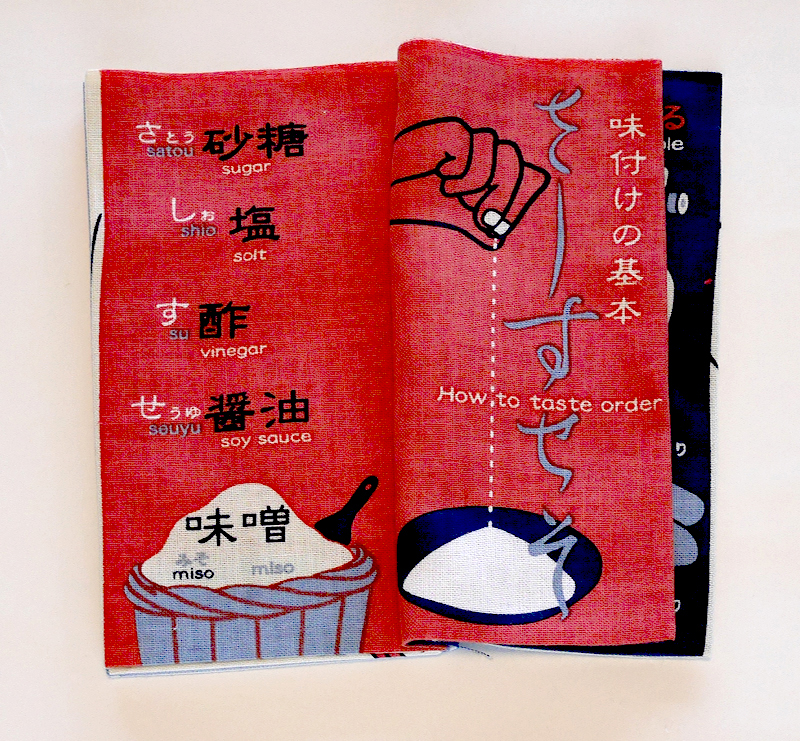 さとう 砂糖
satou
sugar
しお 塩
shio
solt
す 酢
su
vinegar
せうゆ 醤油
seuyu
soy sauce
味噌
みそ
miso miso
味付けの基本
さしすせそ
How to taste order
る
ple
り